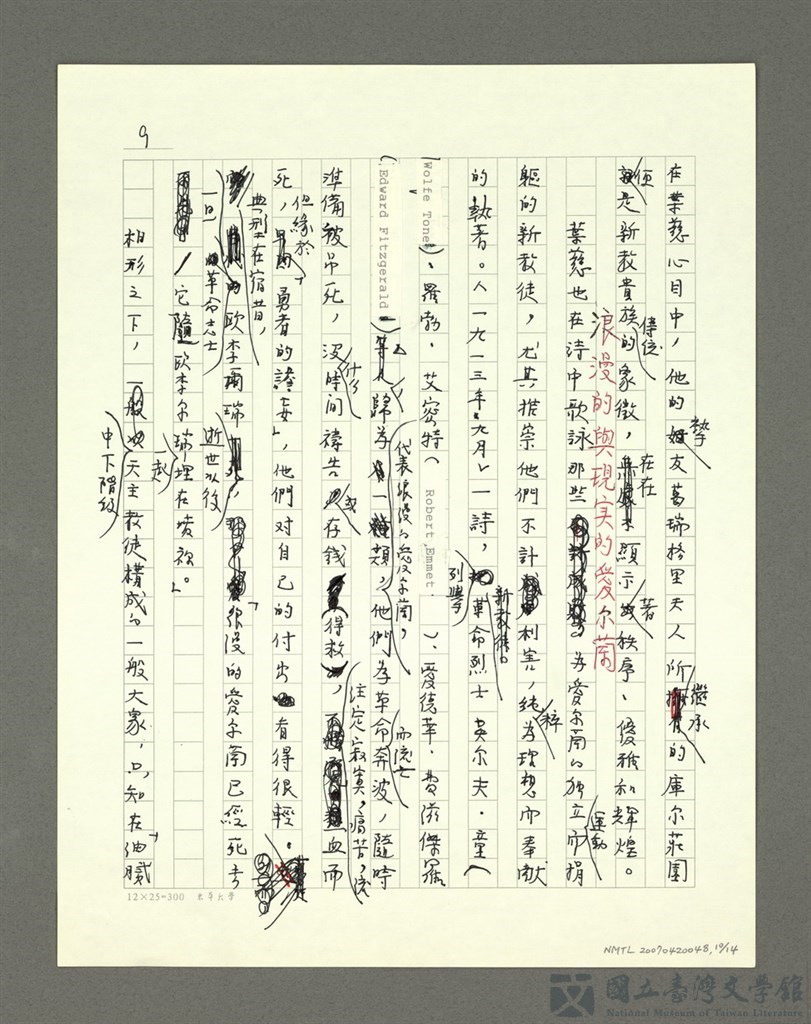 9
在葉慈心目中，他的摯友葛瑞格里夫人所繼承的庫尔莊園
便是新教貴族傳統的象徵，在在顯示著秩序、優雅和輝煌。
浪漫的與現実的愛尔蘭
葉慈也在詩中歌詠那些為愛尔蘭的独立運動而捐
軀的新教徒，尤其推崇他們不計利害，純粹為理想而奉献
的執著。〈一九一三年九月〉一詩，列舉新教徒革命烈士吳尔夫・童（
Wolfe Tone）、羅勃．艾密特（Robert Emmet.）、愛德華．費滋傑羅
（Edward Fitzgerald）等人，歸為一類，代表浪漫的愛尔蘭，他們為革命奔波，隨時
準備被吊死，沒什么時間禱告或存錢（得救），注定寂寞，痛苦，流血而
死，但緣於「勇者的譫妄」，他們对自己的付出看得很輕。
典型在宿昔，
一旦革命志士歐李爾瑞逝世以後，「浪漫的愛尔蘭已經死去
，它隨歐李尔瑞一起埋在墳裡。」
相形之下，中下階級天主教徒構成的一般大眾，只知在「油膩
12×25=300 東華大學
NMTL 20070420048, 10/14
國立臺灣文學館
National Museum of Taiwan Literature